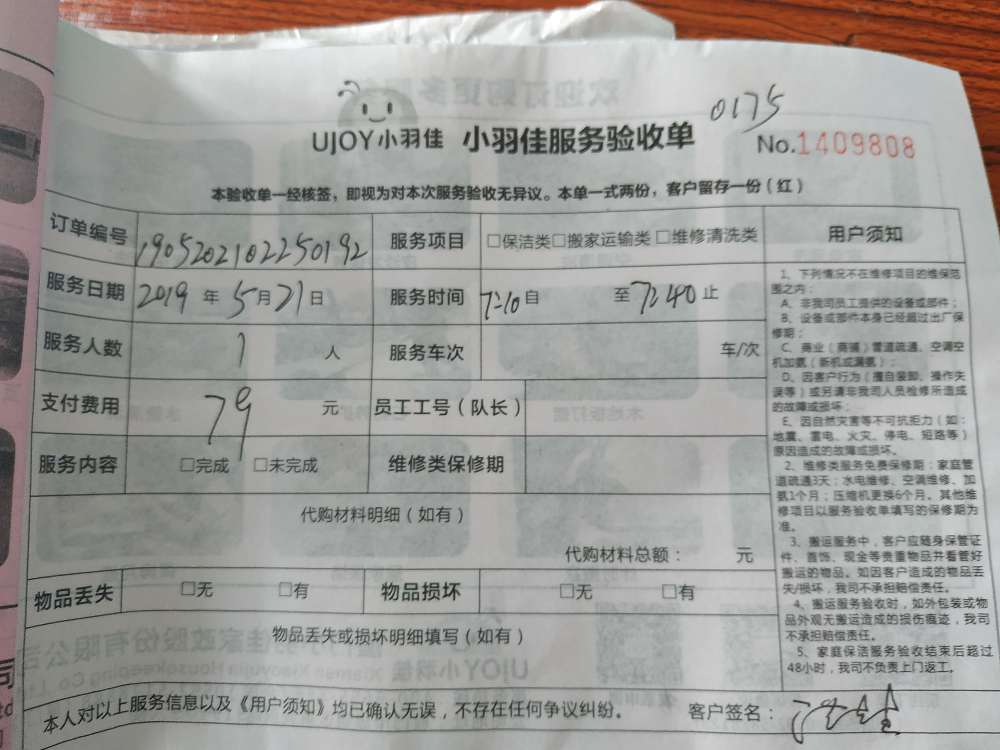 0175
UJOY小羽佳 小羽佳服务验收单 No.1409808
本验收单一经核签，即视为对本次服务验收无异议。本单一式两份，客户留存一份（红）
订单编号 1905202102250192 服务项目 □保洁类□搬家运输类□维修清洗类
服务日期 2019 年 5月21日 服务时间 7:10自 至 7:40止
服务人数 1 人 服务车次 车/次
支付费用 79 元 员工工号（队长）
服务内容 □完成 □未完成 维修类保修期
代购材料明细（如有）
代购材料总额： 元
物品丢失 □无 □有 物品损坏 □无 □有
物品丢失或损坏明细填写（如有）
用户须知
1、下列情况不在维修项目的维保范
围之内：
A、非我司员工提供的设备或部件；
B、设备或部件本身已经超过出厂保
修期；
C、商业（商铺）管道疏通、空调空
机加氨（新机或漏氨）；
D、因客户行为（擅自装卸、操作失
误等）或另请非我司人员检修所造成
的故障或损坏；
E、因自然灾害等不可抗拒力（如：
地震、雷电、火灾、停电、短路等）
原因造成的故障或损坏。
2、维修类服务免费保修期：家庭管
道疏通3天；水电维修、空调维修、加
氨1个月；压缩机更换6个月。其他维
修项目以服务验收单填写的保修期为
准。
3、搬运服务中，客户应随身保管证
件、首饰、现金等贵重物品并看管好
搬运的物品。如因客户造成的物品丢
失/损坏，我司不承担赔偿责任。
4、搬运服务验收时，如外包装或物
品外观无搬运造成的损伤痕迹，我司
不承担赔偿责任。
5、家庭保洁服务验收结束后超过
48小时，我司不负责上门返工。
本人对以上服务信息以及《用户须知》均已确认无误，不存在任何争议纠纷。 客户签名：